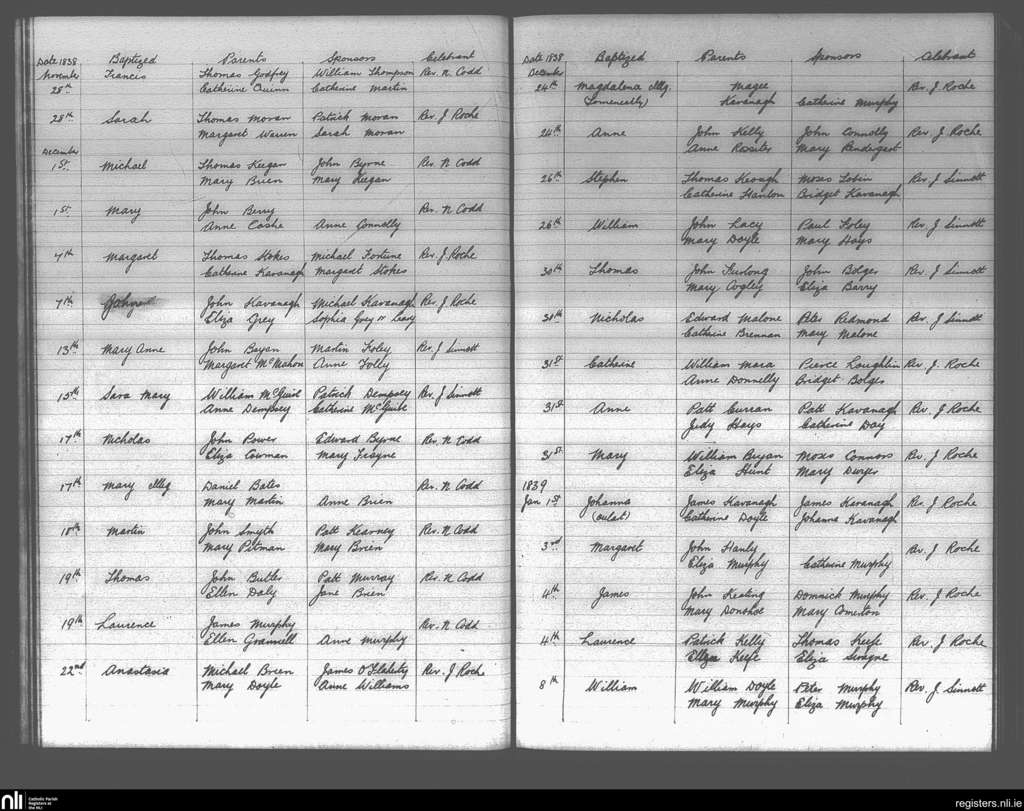 Date 1838 Baptized Parents Sponsors Celebrant
November Francis Thomas Godfrey William Thompson Rev. N. Codd
28th Catherine Quinn Catherine Martin
28th Sarah Thomas Moran Patrick Moran Rev. J Roche
Margaret Warren Sarah Moran
December
1st Michael Thomas Keegan John Byrne Rev. N. Codd
Mary Brien Mary Keegan
1st Mary John Berry Rev. N. Codd
Anne Cashe Anne Connolly
7th Margaret Thomas Stokes Michael Fortune Rev. J. Roche
Catherine Kavanagh Margaret Stokes
7th John Kavanagh Michael Kavanagh Rev. J Roche
Eliza Grey Sophia Grey or Leary
13th Mary Anne John Bryan Martin Foley Rev. J. Sinnott
Margaret McMahon Anne Folly
15th Sara Mary William McGuire Patrick Dempsey Rev. J Sinnott
Anne Dempsey Catherine McGuire
17th Nicholas John Power Edward Byrne Rev. N. Codd
Eliza Cowman Mary Frayne
17th Mary Illeg Daniel Bates Rev. N. Codd
Mary Martin Anne Brien
18th Martin John Smyth Patt Kearney Rev. N. Codd
Mary Pitman Mary Brien
19th Thomas John Butler Patt Murray Rev. N. Codd
Ellen Daly Jane Brien
19th Laurence James Murphy Rev. N. Codd
Ellen Grannell Anne Murphy
22nd Anastasia Michael Breen James O'Flaherty Rev. J Roche
Mary Doyle Anne Williams
Date 1838 Baptized Parents Sponsors Celebrant
December
24th Magdalena Illeg. Magee Rev. J Roche
Kavanagh Catherine Murphy
24th Anne John Kelly John Connolly Rev. J Roche
Anne Rossiter Mary Pendergast
26th Stephen Thomas Keough Moses Tobin Rev. J Sinnott
Catherine Hanlon Bridget Kavanagh
26th William John Lacy Paul Foley Rev. J Sinnott
Mary Doyle Mary Hays
30th Thomas John Furlong John Bolger Rev. J Sinnott
Mary Cogley Eliza Barry
30th Nicholas Edward Malone Peter Redmond Rev. J Sinnott
Catherine Brennan Mary Malone
31st Catherine William Mara Pierce Loughlin Rev. J. Roche
Anne Donnelly Bridget Bolger
31st Anne Patt Curran Patt Kavanagh Rev. J Roche
Judy Hays Catherine Day
31st Mary William Bryan Moses Connors Rev. J Roche
Eliza Hunt Mary Dwyer
1839
Jan 1st Johanna James Kavanagh James Kavanagh Rev. J Roche
(Oulart) Catherine Doyle Johanna Kavanagh
3rd Margaret John Hanly Rev. J Roche
Eliza Murphy Catherine Murphy
4th James John Keating Dominick Murphy Rev. J Roche
Mary Donohoe Mary
4th Laurence Patrick Kelly Thomas Keefe Rev. J Roche
Eliza Keefe Eliza
8th William William Doyle Peter Murphy Rev. J. Sinnott
Mary Murphy Eliza Murphy
nli Catholic Parish
Registers at
the NLI
registers.nli.ie